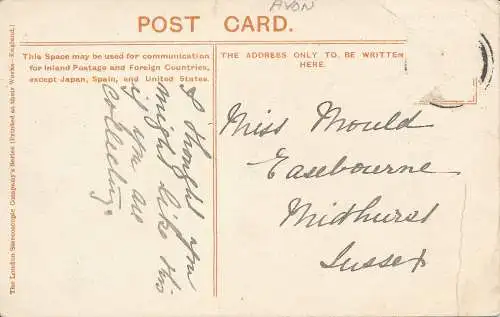 AVON
POST CARD.
This Space may be used for communication
for Inland Postage and Foreign Countries,
except Japan, Spain, and United States.
THE ADDRESS ONLY TO BE WRITTEN
HERE.
I thought you
might like this
if you are
collecting.
Miss Mould
Easebourne
Midhurst
Sussex
The London Stereoscopic Company's Series (Printed at their Works—England.)